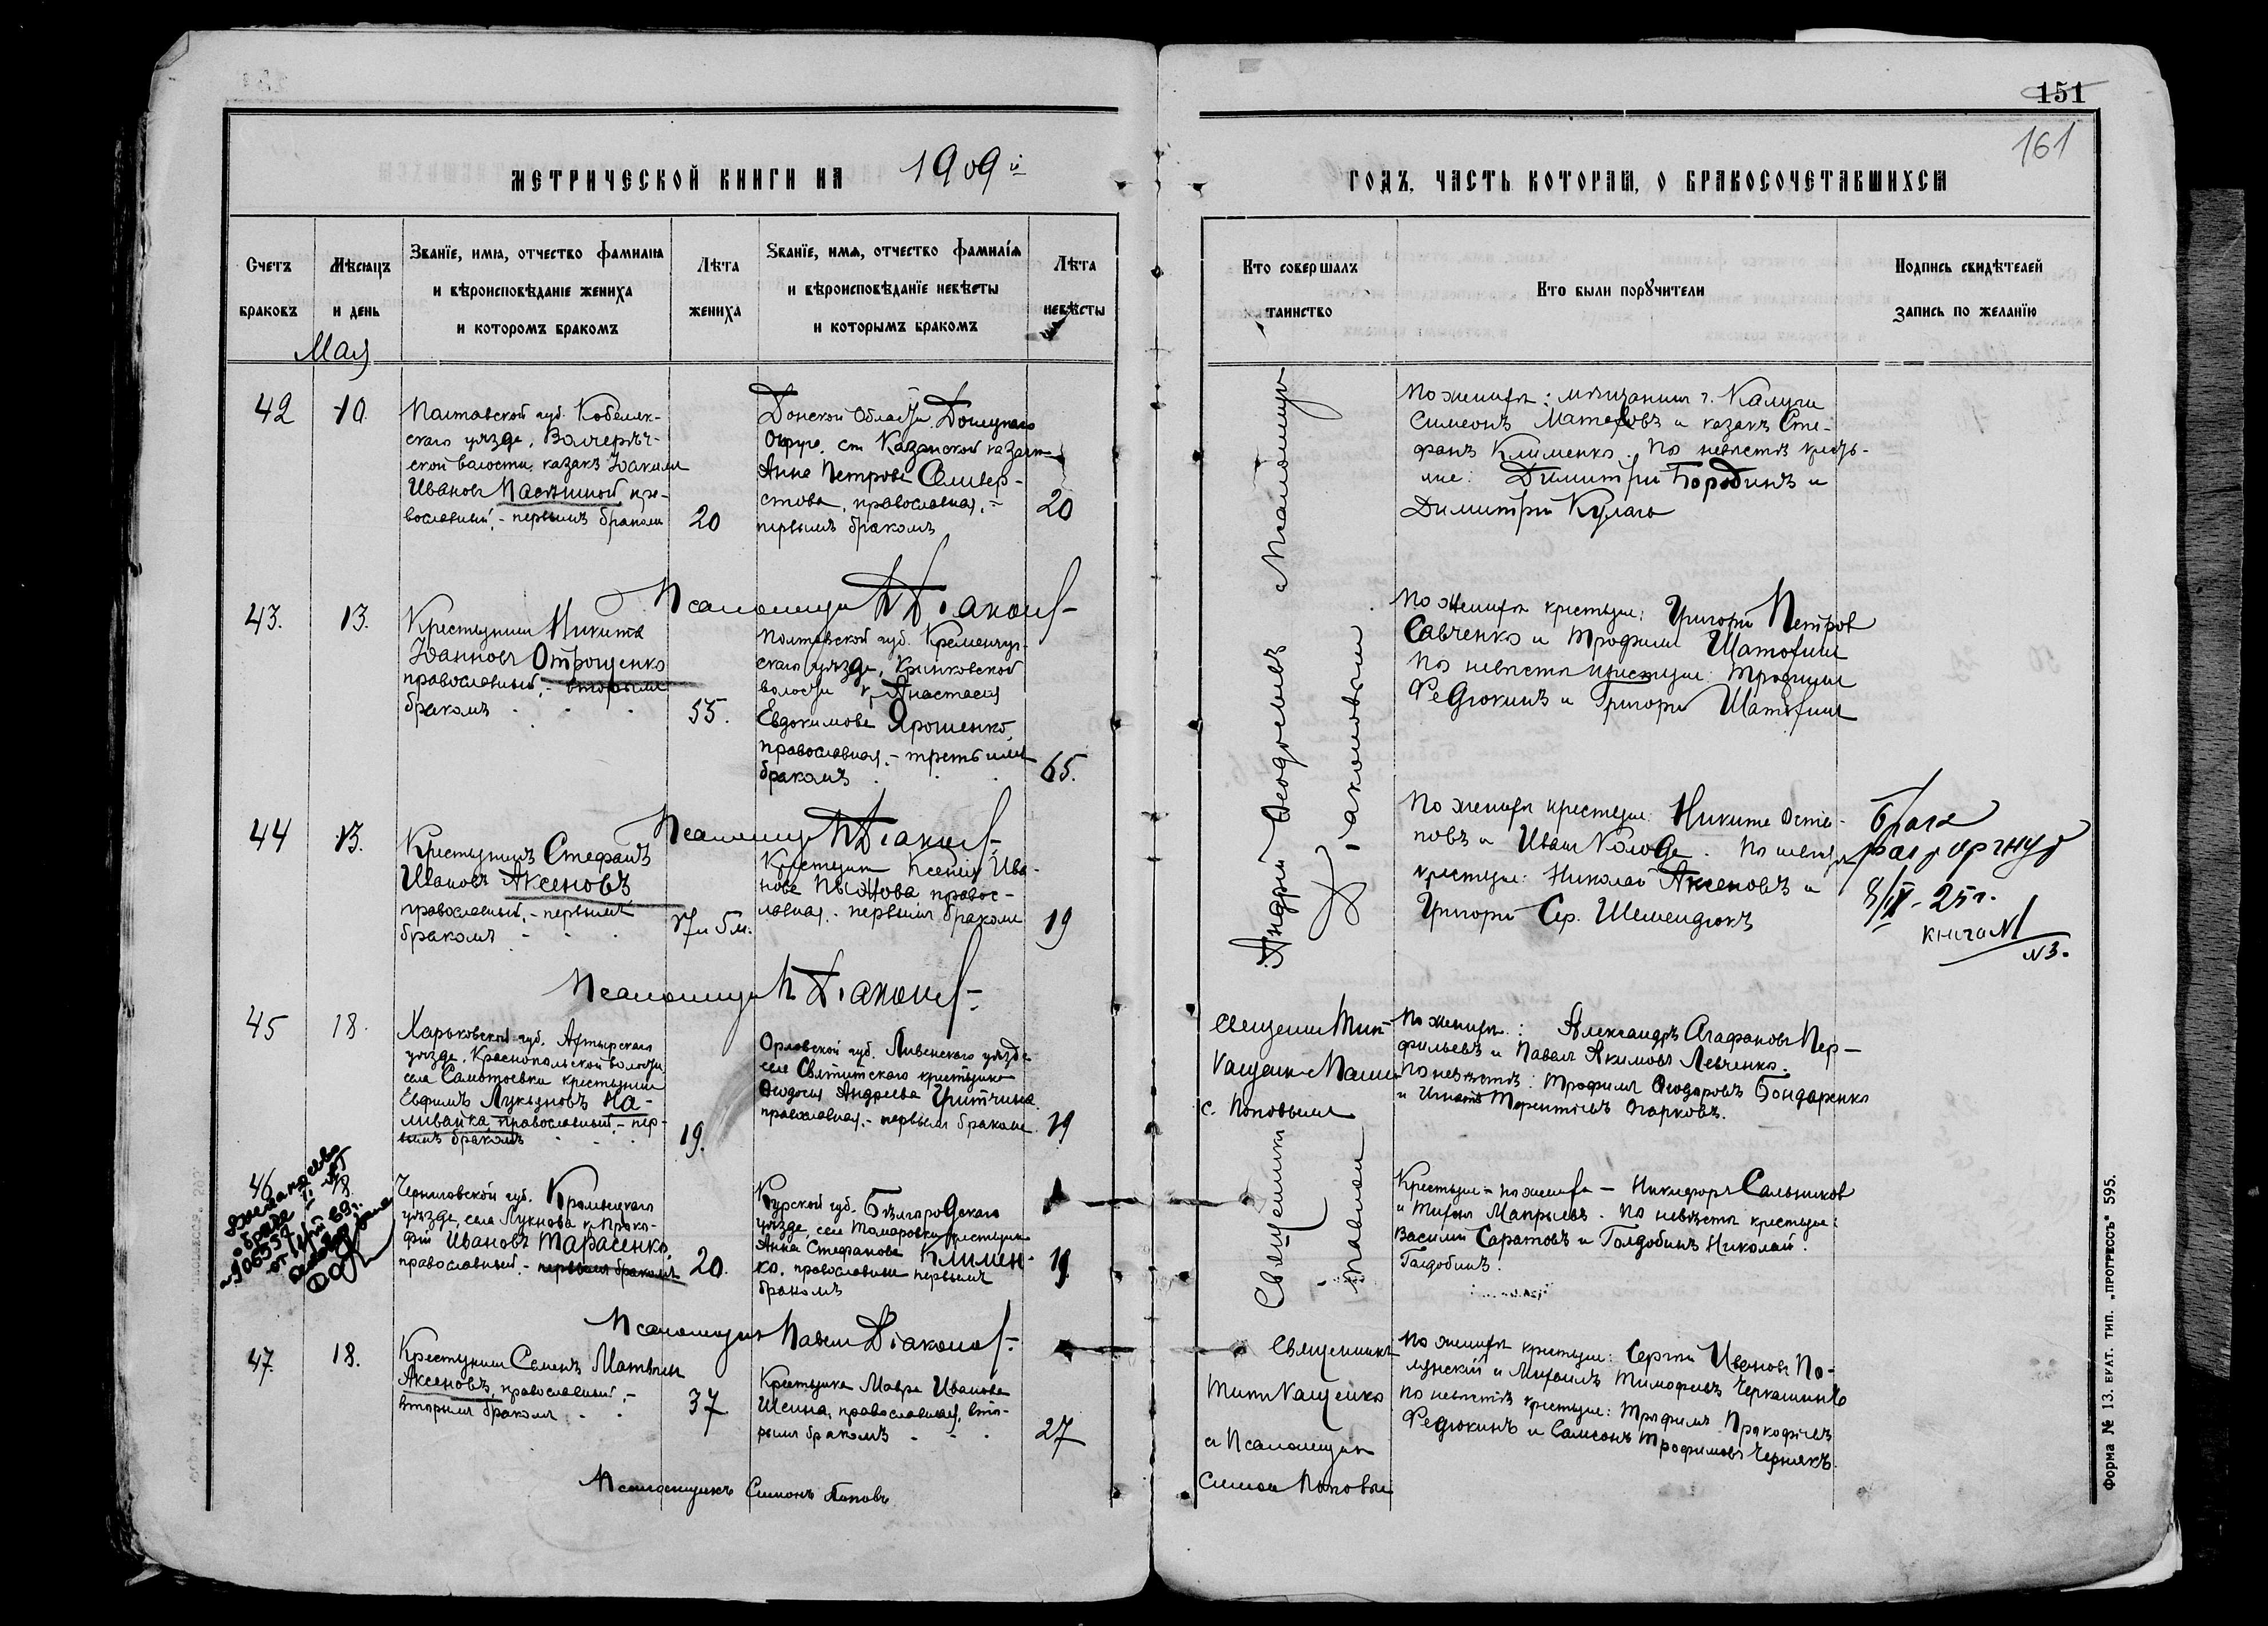 151
161
МЕТРИЧЕСКОЙ КНИГИ НА 1909й
ГОДЪ, ЧАСТЬ КОТОРАЯ, О БРАКОСОЧЕТАВШИХСЯ
Счетъ браковъ
Мѣсяцъ и день
Званїе, имя, отчество фамилия
и вѣроисповѣданїе жениха
и которомъ бракомъ
Лѣта жениха
Званїе, имя, отчество фамилїя
и вѣроисповѣданїе невѣсты
и которымъ бракомъ
Лѣта невѣсты
Кто совершалъ
таинство
Кто были порꙋчители
Подпись свидѣтелей
запись по желанїю
Мая
42
10.
Полтавской губ. Кобеляк-
скаго уѣзда,
ской волости, казакъ
Ивановъ пра-
вославный, - первымъ бракомъ
20
Донской Области Донецкаго
Округа, ст. Казанской казачка
Анна Петрова Селивер-
стова, православная, -
первымъ бракомъ
20
По женихѣ: мѣщанинъ г. Калуги
Симеонъ и казакъ Сте-
фанъ Клименко. По невѣстѣ кресть-
яне: Димитрій Бородинъ и
Димитрій Кулага
Псаломщикъ П Діаконовъ
43.
13.
Крестьянинъ Никита
Іоанновъ Отрощенко
православный, - вторымъ
бракомъ
55.
Полтавской губ. Кременчуг-
скаго уѣзда, Крюковской
волости к. Анастасія
Евдокимова Ярошенко,
православная, - третьимъ
бракомъ
65.
По женихѣ крестьяне: Григорій Петров
Савченко и Трофимъ
По невѣстѣ крестьяне: Трофимъ
Федюкинъ и Григорій
Псаломщикъ П Діаконовъ
44
13.
Крестьянинъ Стефанъ
Ивановъ Аксеновъ
православный, - первымъ
бракомъ
17 и 5 м.
Крестьянка Ксенія Ива-
нова правос-
лавная, - первымъ бракомъ
19
По женихѣ крестьяне: Никита Оста-
повъ и Иванъ Колода. По невѣстѣ
крестьяне: Николай Аксеновъ и
Григорій Сер. Шемендюкъ
Брак
расторгнут
8/IX-25г.
книга №1
№3.
Псаломщикъ П Діаконовъ
Андрей Ѳеодосьевъ
Псаломщикъ
Діаконовымъ
45
18.
Харьковской губ. Ахтырскаго
уѣзда, Краснопольской волости,
села Самотоевки крестьянинъ
Евфимъ Лукьяновъ На-
ливайка, православный, - пер-
вымъ бракомъ
19.
Орловской губ. Ливенскаго уѣзда
села Святитскаго крестьянка
Ѳеодосія Андреева
православная, - первымъ бракомъ
19
Священник Тит
Кащенко
с. Поповымъ
По женихѣ: Александръ Агафоновъ Пер-
фильевъ и Павелъ Якимовъ Левченко.
По невѣстѣ: Трофимъ Ѳеодоровъ Бондаренко
и Игнатъ Терентьевъ Огарковъ.
46
18.
о браке
Черниговской губ. Кролевецкаго
уѣзда, села к. Проко-
фій Ивановъ Тарасенко
православный, - первымъ бракомъ
20.
Курской губ. Бѣлгородскаго
уѣзда, села Томаровки крестьянка
Анна Стефанова Климен-
ко, православная первымъ
бракомъ
19
Священникъ
Павломъ
Крестьяне - по женихѣ - Никифоръ Сальников
и Тихонъ. По невѣстѣ крестьяне:
Василій Саратовъ и Голдобинъ Николай.
Голдобинъ.
Псаломщикъ Павелъ Діаконовъ
47.
18.
Крестьянинъ Семенъ Матвѣевъ
Аксеновъ, православный, -
вторымъ бракомъ
37
Крестьянка Мавра Иванова
православная, вто-
рымъ бракомъ
27
Священникъ
Титъ Кащенко
и Псаломщик
Симон Поповым
По женихѣ крестьяне: Сергѣй Ивановъ По-
лунскій и Михаилъ Тимофеевъ Черкашинъ
По невѣстѣ крестьяне: Трофимъ Прокофьевъ
Федюкинъ и Самсонъ Трофимовъ Чернякъ.
Псаломщикъ Симонъ Поповъ
Форма № 13. ЕКАТ. ТИП. „ПРОГРЕССЪ" 595.